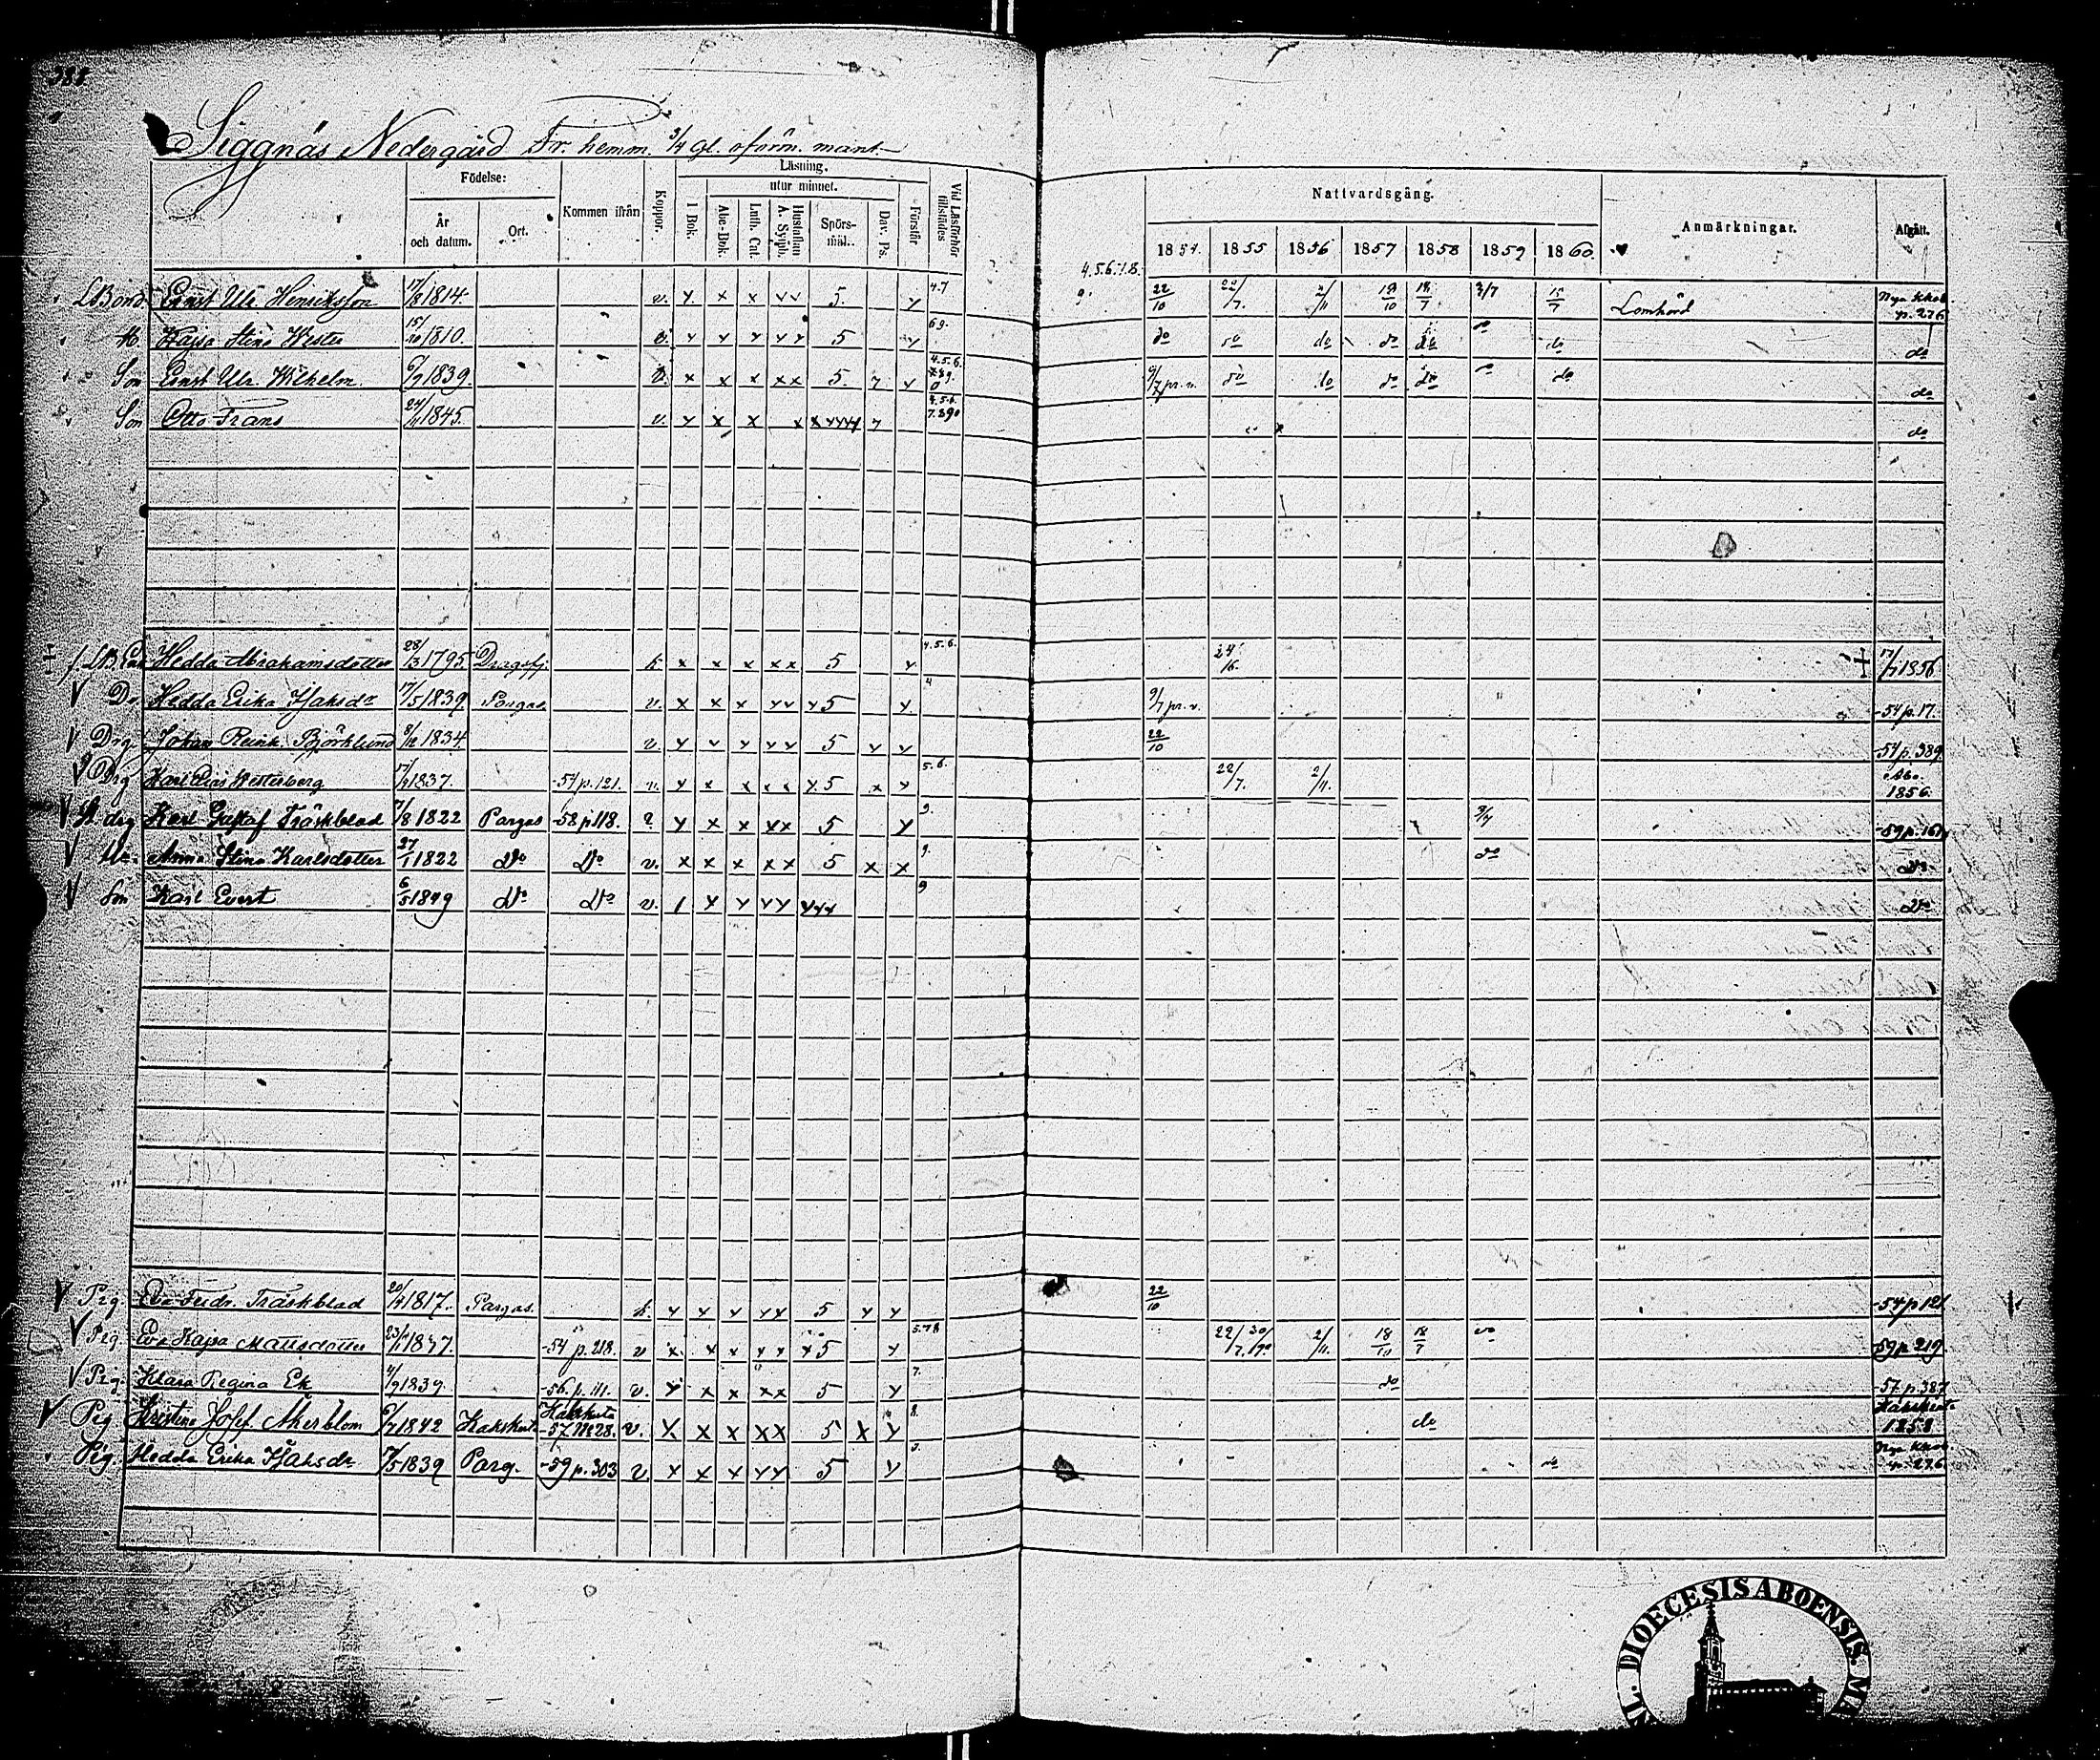 388
Siggnäs Nedergård Fr. hemm. 3/4 gl. oförm. mant.
Födelse: Kommen ifrån Koppor. Läsning. Vid Läsförhör tillstädes
År och datum. Ort. I Bok. utur minnet. Förstår
Abc-Bok. Luth. Cat. Hustaflan A. Symb. Spörs-mål. Dav. Ps.
Nattvardsgång. Anmärkningar. Afgått.
1854. 1855 1856 1857 1858 1859 1860
4.5.6.7.8. 9.
LBond. Ernst Ulr. Henriksson 17/8 1814. v. 5. 4.7 22/10 22/7. 2/11 18/10 18/7 3/7 15/7 Lomhörd Nya kkob. p. 276
H. Kajsa Stina Wester 15/10 1810. v. 5 6 9. do do do do do do do do
Son Ernst Ulr. Wilhelm. 6/7 1839. v. 5. 4.5.6. 7.8.9. 0 9/7 pr. n. do do do do do do do
Son Otto Frans 24/11 1845. v. 4.5.6. 7.8.9.0 do
Hedda Abrahamsdotter 28/3 1795 Dragsfj. k 5 4.5.6. 24/6. † 17/7 1856
D. Hedda Erika Isaksdr 17/5 1839 Pargas v. 5 4 9/7 pr. n. -54 p. 17.
Drg Johan Reinh. Björklund 8/12 1834. v. 5 22/10 -54 p. 389
Drg Karl Elias Westerberg 17/9 1837. -54 p. 121. v. 5 5.6. 22/7. 2/11. Åbo. 1856.
drg Karl Gustaf Träskblad 7/8 1822 Pargas -58 p 118. 5 9. 3/7 -59 p. 161
Anna Stina Karlsdotter 27/1 1822 Do Do v. 5 9. do Do
Son Karl Evert 6/5 1849 Do Do v. 9 Do
Pig. Eva Fredr. Träskblad 20/4 1817. Pargas. k. 5 22/10 -54 p 121
Pig. Eva Kajsa Mattsdotter 23/11 1837. -54 p. 218. v 5 5.7.8 22/7. 30/9. 2/11. 18/10 18/7 do -59 p 219.
Pig. Klara Regina Ek 4/9 1839. -56. p. 111. v. 5 7. do -57 p. 387
Pig Kristina Josef. Åkerblom 6/7 1842 Kakskerta Kakskerta -57 No 28. v. 5 8. do Kakskerta 1858
Pig. Hedda Erika Isaksdr 17/5 1839 Parg. -59 p. 303 v. 5 9. do Nya kkob. p. 276
DIOECESIS ABOENSIS.